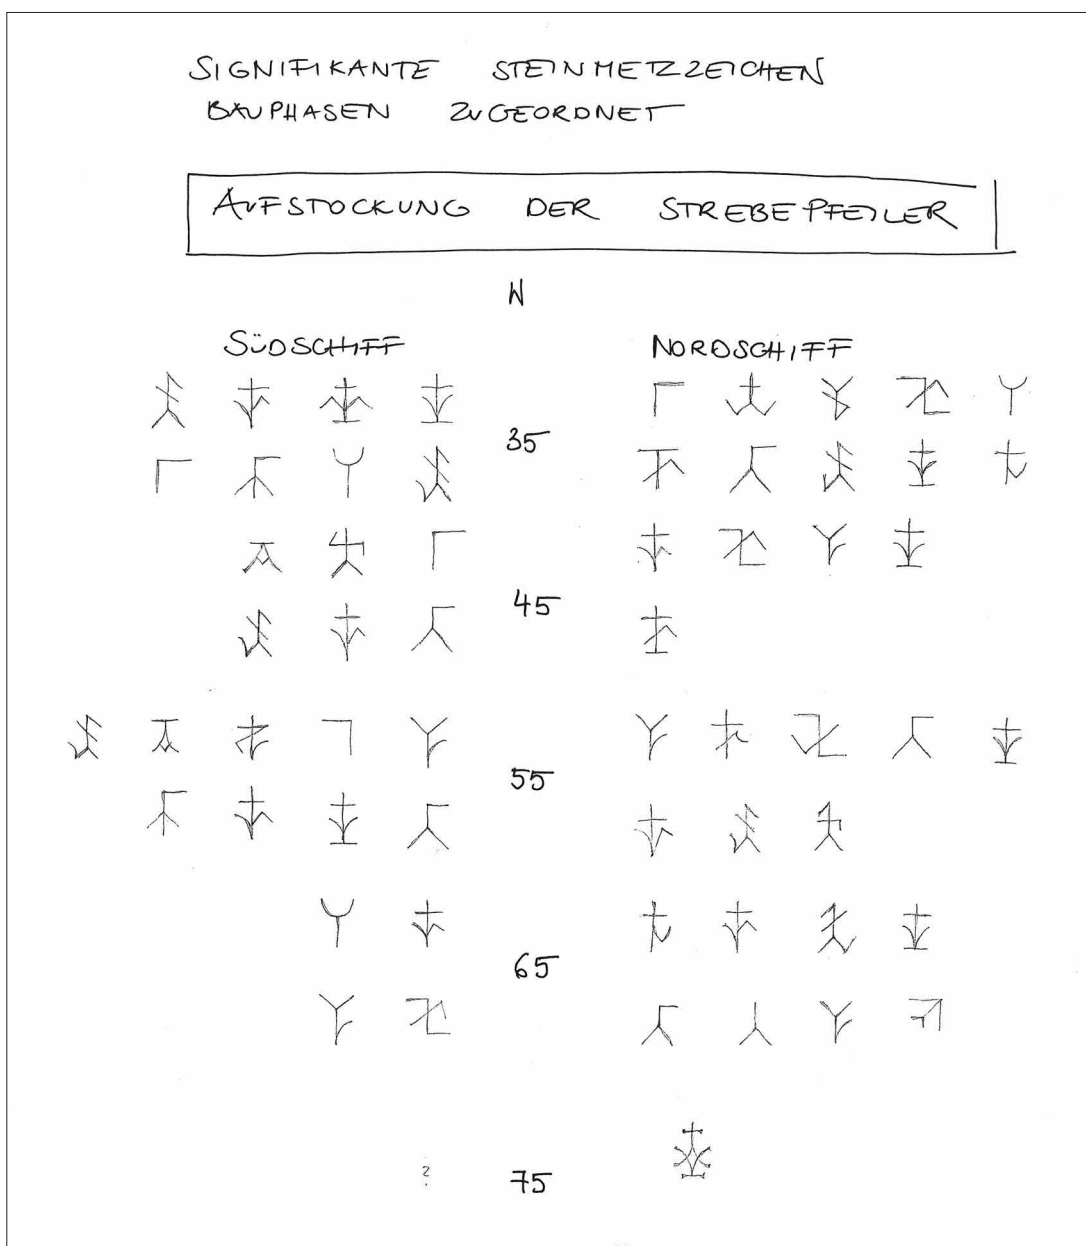 SIGNIFIKANTE STEINMETZZEICHEN
BAUPHASEN ZUGEORDNET
AUFSTOCKUNG DER STREBEPFEILER
W
SÜDSCHIFF NORDSCHIFF
35
45
55
65
? 75